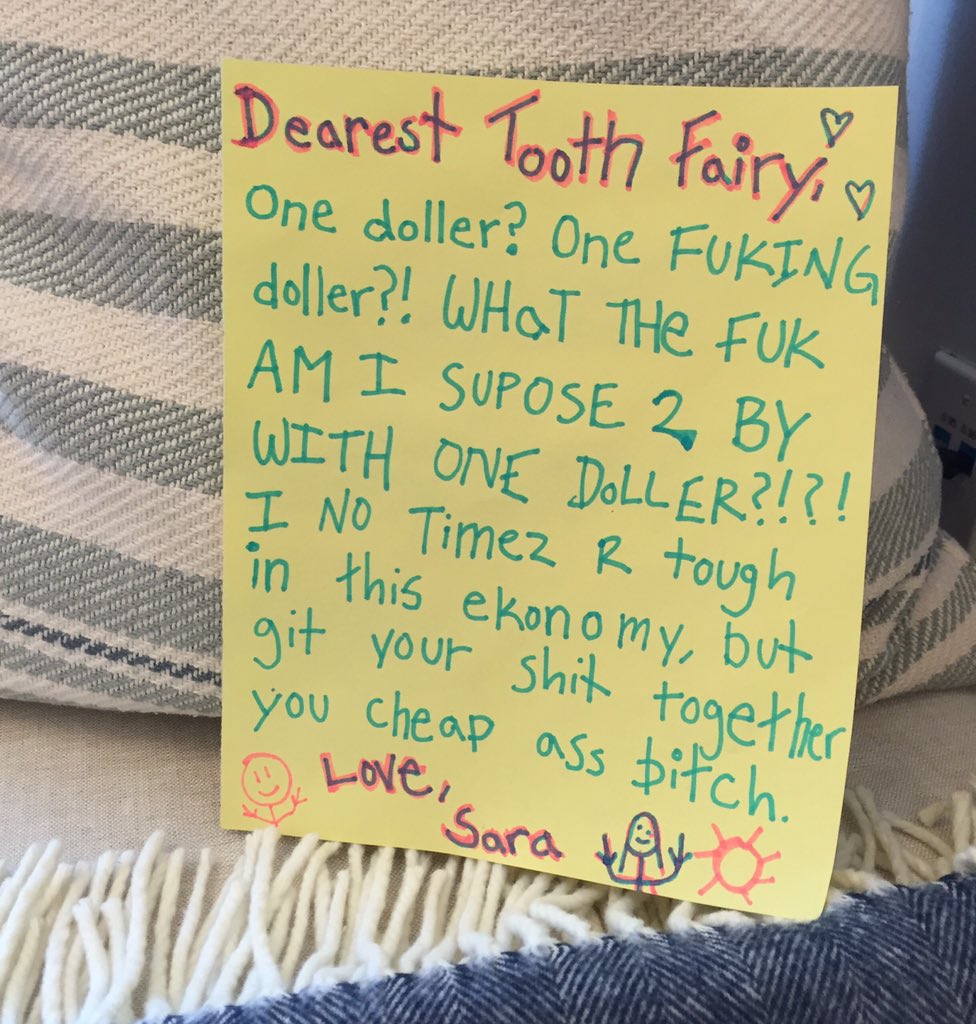 Dearest Tooth Fairy,
One doller? One FUKING
doller?! WHaT THe FUK
AM I SUPOSE 2 BY
WITH ONE DoLLER?!?!
I NO Timez R tough
in this ekonomy, but
git your shit together
you cheap ass bitch.
Love,
Sara